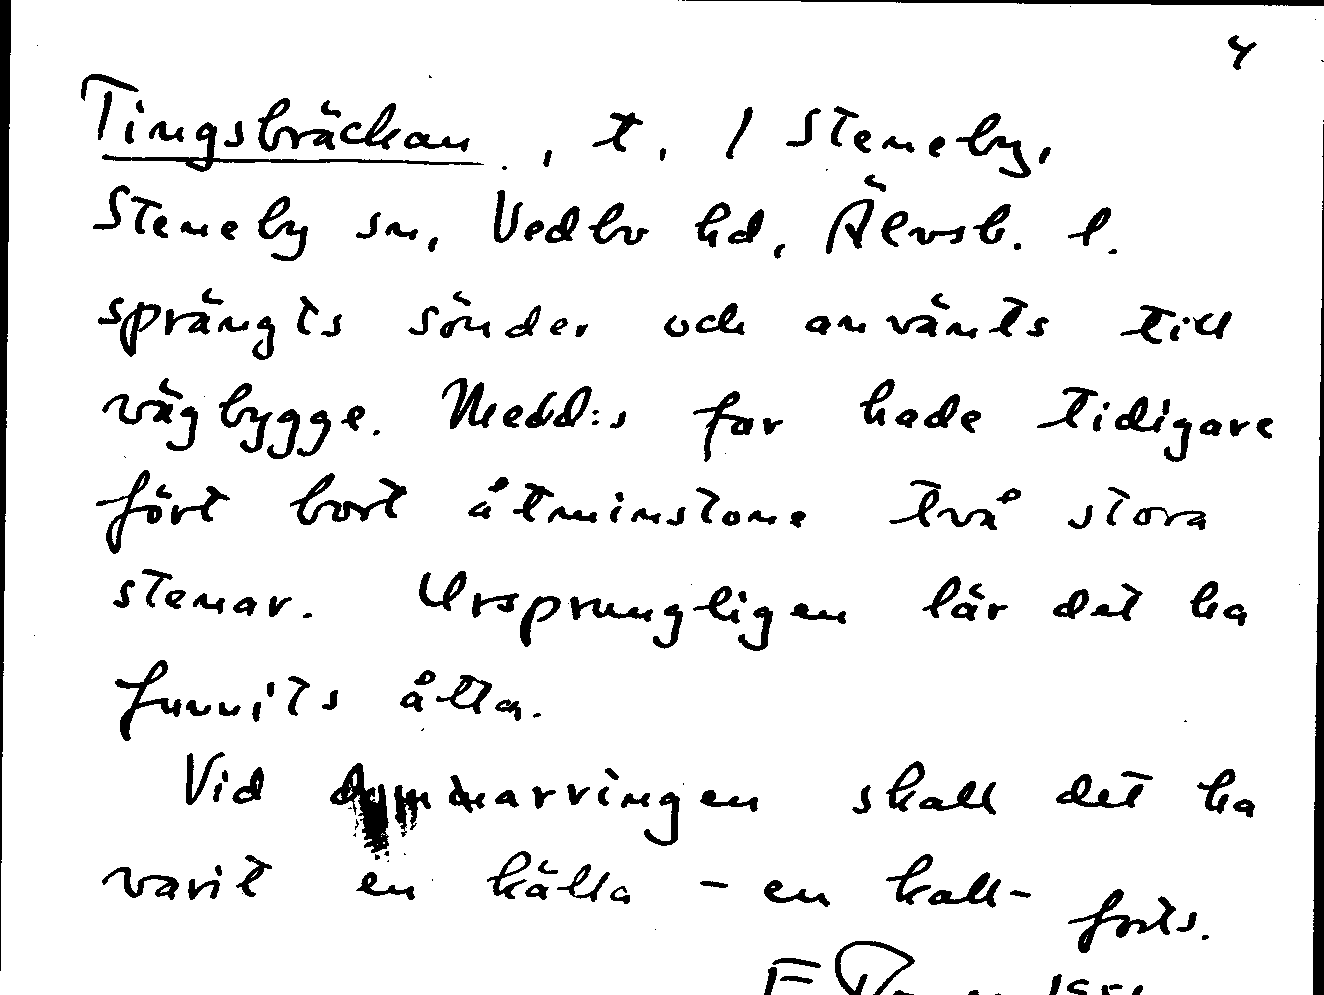 4
Tingsbräckan, t. / Steneby,
Steneby sn, Vedbo hd, Älvsb. l.
sprängts sönder och använts till
vägbygge. Medd:s far hade tidigare
fört bort åtminstone två stora
stenar. Ursprungligen lär det ha
funnits åtta.
Vid domarringen skall det ha
varit en källa - en kall-
forts.